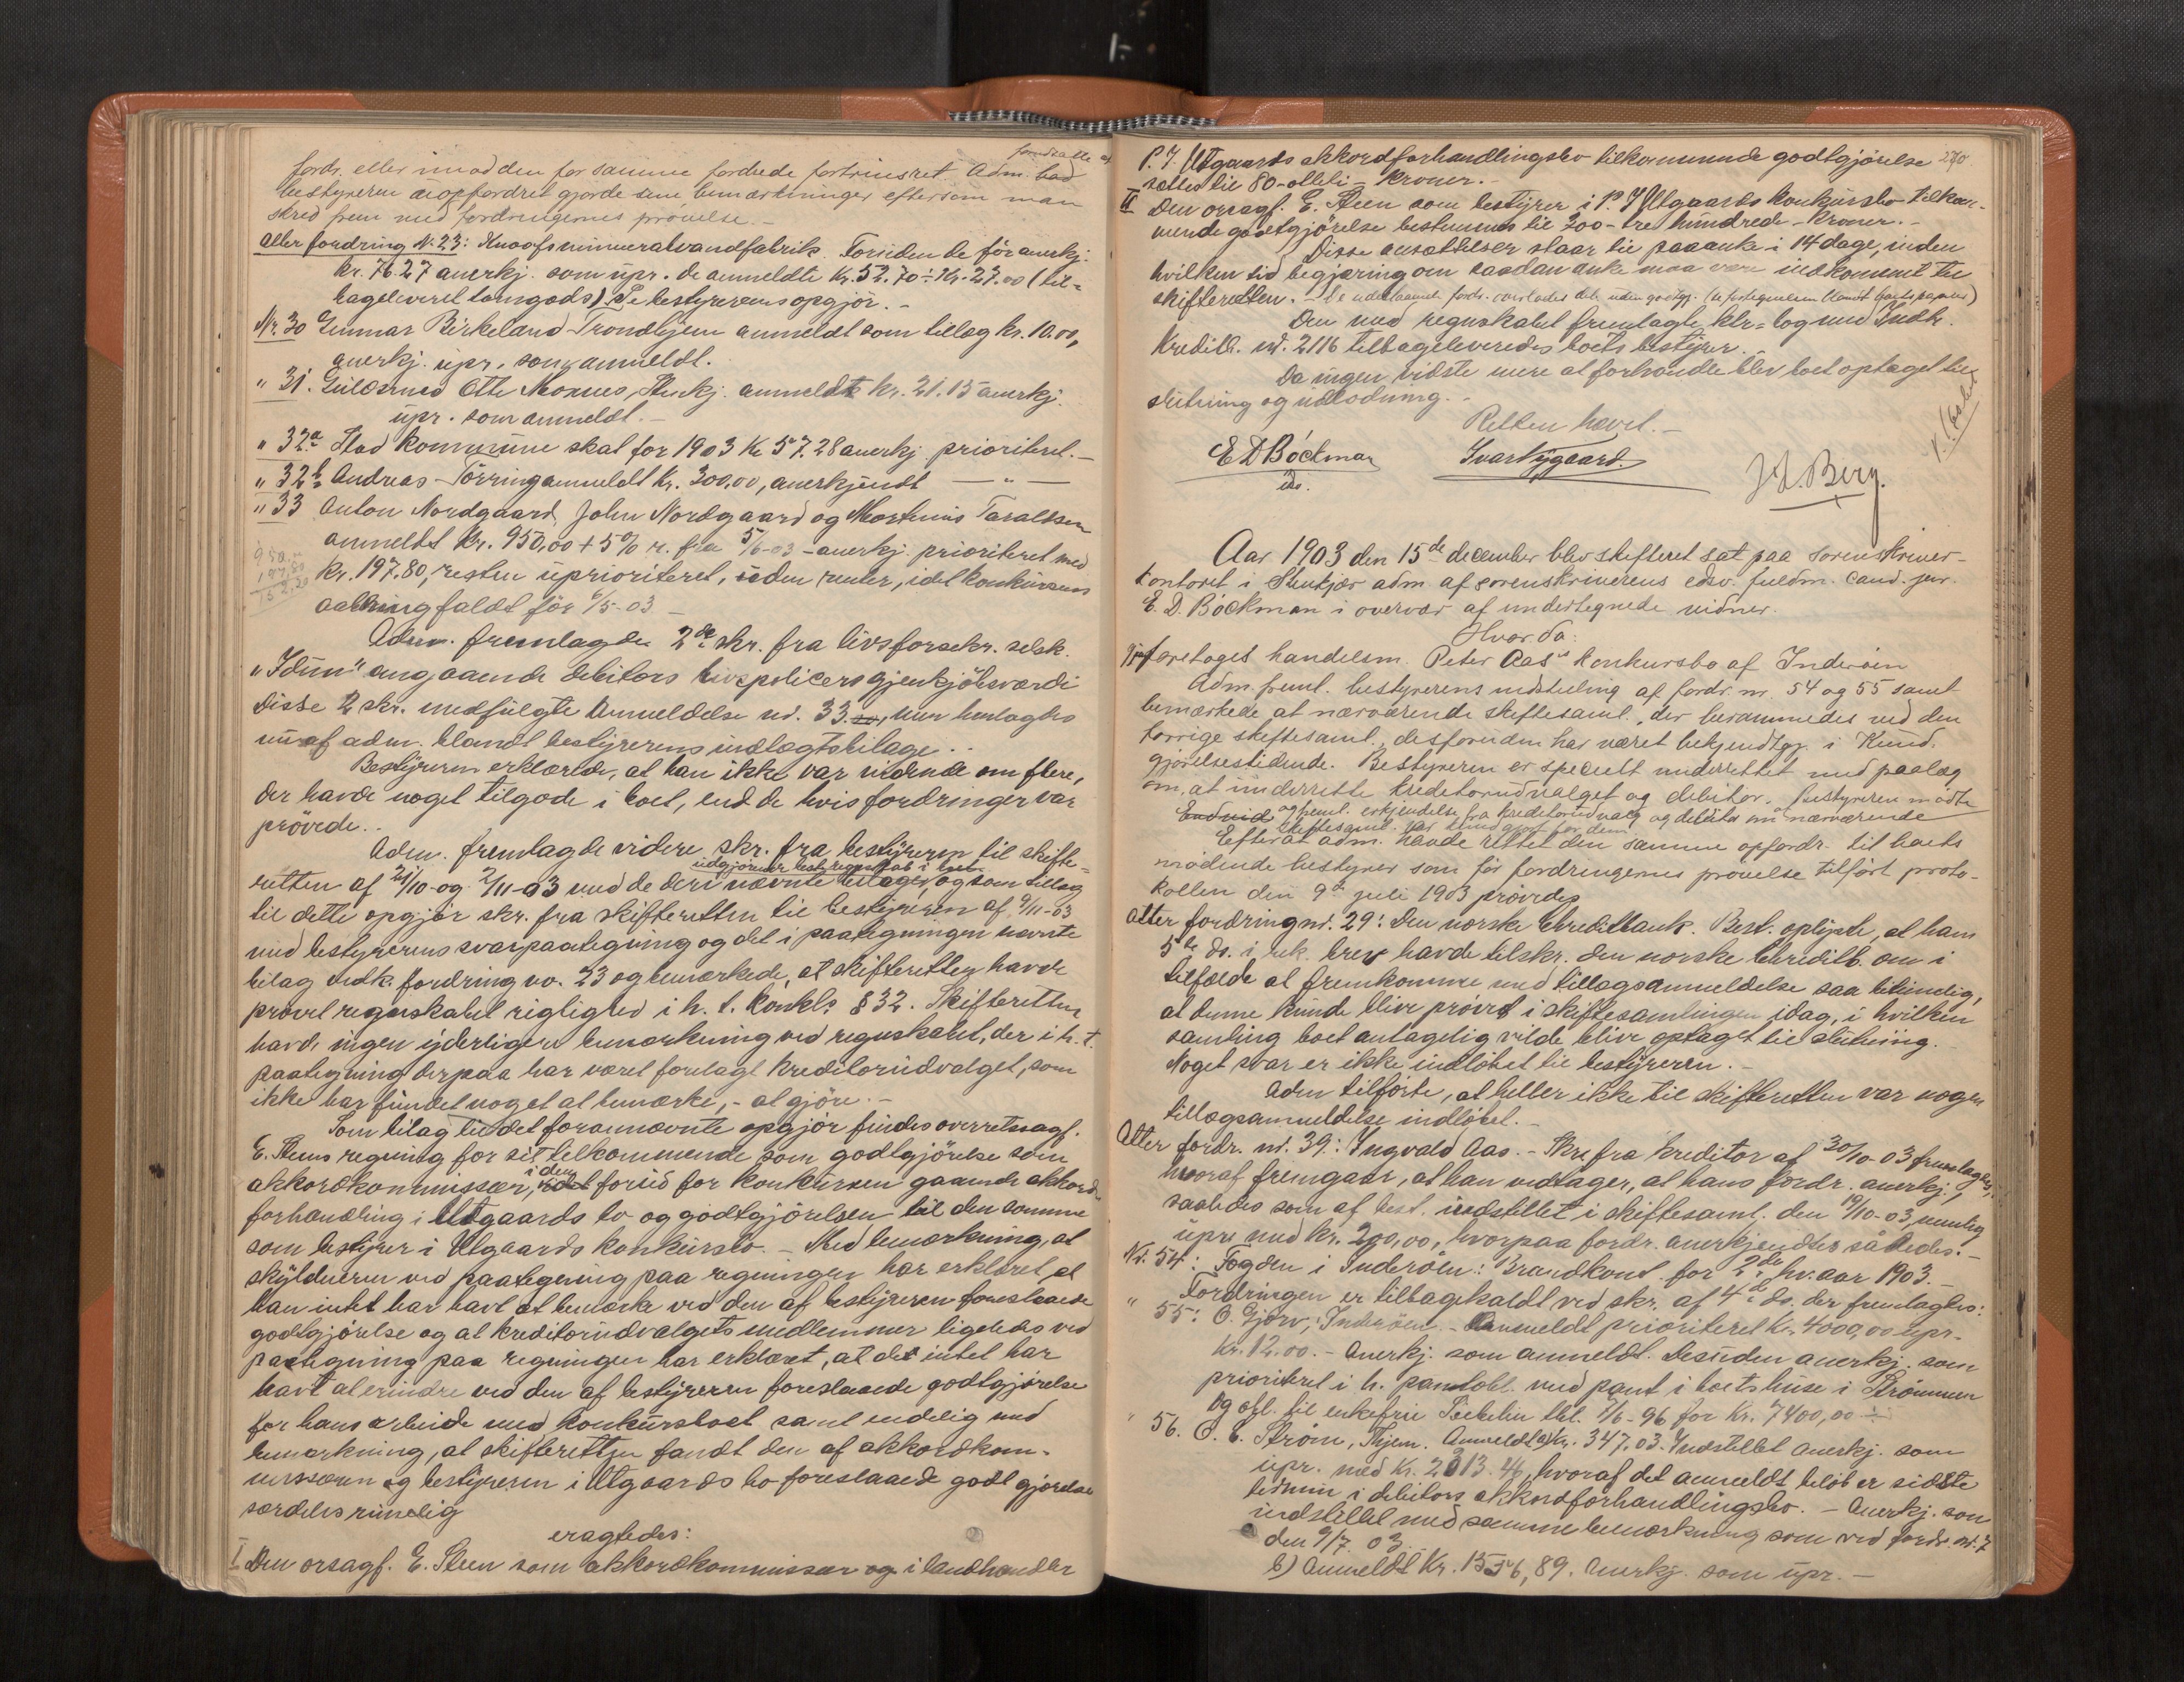 fordr. eller imod den for samme fordrede fortrinsret. Adm. bad
bestyreren uopfordret gjorde sine bemærkninger eftersom man
skred frem med fordringernes prøvelse.-
Atter fordring N. 23: Knoofs mineralvandfabrik. Foruden de før anerkj.
kr. 76.27 anerkj. som upr. de anmeldte Kr. 52.70 ÷ Kr. 27.00 (til-
bageleveret tomgods). Se bestyrerens opgjør.-
Nr. 30 Gunnar Birkeland Trondhjem anmeldt som tillæg kr. 10.00,
anerkj. upr. som anmeldt.
" 31. Guldsmed Otto Moxnes, Stenkj. anmeldt kr. 21.15 anerkj.
upr. som anmeldt.-
" 32a Stod kommune skat for 1903 Kr 57.28 anerkj. prioriteret.-
" 32b Andreas Tørring anmeldt Kr. 300,00, anerkjendt — " —
" 33 Anton Nordgaard, John Nordgaard og Mortinus Taraldsen
anmeldt Kr. 950,00 + 5% r. fra 5/6-03 - anerkj. prioriteret med
kr. 197.80, resten uprioriteret, uden renter, idet konkursens
aabning faldt før 6/5-03 -
Adm. fremlagde 2de skr. fra livsforsekr. selsk.
"Idun" angaaende debitors livspolicers gjenkjøbsværdi
Disse 2 skr. medfulgte Anmeldelse nr. 33, men henlagdes
nu af adm. blandt bestyrerens indlægtsbilage..
Bestyreren erklærede, at han ikke var vidende om flere,
der havde noget tilgode i boet, end de hvis fordringer var
prøvede..
Adm. fremlagde videre skr. fra bestyreren til skifte-
udgjørende bestyrerregnskab i boet
retten af 21/10 og 2/11-03 med de deri nævnte bilager og som tillæg
til dette opgjør skr. fra skifteretten til bestyreren af 9/11-03
med bestyrerens svarpaategning og det i paategningen nævnte
bilag vedk. fordring no. 23 og bemærkede, at skifteretten havde
prøvet regnskabet rigtighed i h. t. konkl. § 32. Skifteretten
havde ingen yderligere bemærkning ved regnskabet, der i h. t.
paategning derpaa har været forelagt kreditorudvalget, som
ikke har fundet noget at bemærke,- at gjøre.-
Som bilag til det forannævnte opgjør findes overretssagf.
E. Steens regning for sit tilkommende som godtgjørelse som
akkordkommissær, i den forud for konkursen gaaende akkord-
forhandling i Utgaards bo og godtgjørelsen til den samme
som bestyrer i Utgaards konkursbo.- Med bemærkning, at
skyldneren ved paategning paa regningen har erklæret, at
han intet har havt at bemærke ved den af bestyreren foreslaaede
godtgjørelse og at kreditorudvalgets medlemmer ligeledes ved
paategning paa regningen har erklæret, at det intet har
havt at erindre ved den af bestyreren foreslaaede godtgjørelse
for hans arbeide med konkursboet samt endelig med
bemærkning, at skifteretten fandt den af akkordkom-
missæren og bestyreren i Utgaards bo foreslaaede godtgjørelse
særdeles rimelig
eragtedes:
I Den orsagf. E. Steen som akkordkommissær og i landhandler
P. J. Utgaards akkordforhandlingsbo tilkommende godtgjørelse 270
sættes til 80-otteti- kroner.-
II Den orsagf. E. Steen som bestyrer i P. J Utgaards konkursbo tilkom-
mende godtgjørelse bestemmes til 300-tre hundrede- kroner.-
Disse ansættelser staar til paaanke i 14 dage, inden
hvilken tid begjæring om saadan anke maa være indkommet til
skifteretten.- De udestaaende fordr. overlades deb. uden godtgj. (se fortegnelsen blandt boets papirer)
Den med regnskabet fremlagte ktr=bog med Indh.
Kreditb. nr. 2116 tilbageleveredes boets bestyrer.
Da ingen vidste mere at forhandle blev boet optaget til
slutning og udlodning.-
Retten hævet.-
E D Bøckman Ivar Nygaard. J. L. Berg.
Aar 1903 den 15de december blev skifteret sat paa sorenskriver-
kontoret i Stenkjær adm. af sorenskriverens edsv. fuldm. cand. jur.
E. D. Bøckman i overvær af undertegnede vidner.
Hvorda:
foretoges handelsm. Peter Aas's konkursbo af Inderøen
Adm. freml. bestyrerens indstilling af fordr. nr. 54 og 55 samt
bemærkede at nærværende skiftesaml., der berammedes ved den
forrige skiftesaml., desforuden har været bekjendtgj. i Kund-
gjørelsestidende. Bestyreren er specielt underrettet med paalæg
om, at underrette kreditorudvalget og debitor. Bestyreren mødte
og freml. erkjendelse fra kreditorudvalg og debitor om nærværende
skiftesaml. var kundgjort for dem
Efterat adm. havde rettet den samme opfordr. til boets
mødende bestyrer som før fordringernes prøvelse tilført proto-
kollen den 9de juli 1903 prøvedes
Atter fordring nr. 29: Den norske Kreditbank. Best. oplyste, at ham
5te ds. i rek. brev havde tilskr. den norske kreditb. om i
tilfælde at fremkomme med tillægsanmeldelse saa betimelig,
at denne kunde blive prøvet i skiftesamlingen idag, i hvilken
samling boet antagelig vilde blive optaget til slutning.
Noget svar er ikke indløbet til bestyreren.-
Adm tilførte, at heller ikke til skifteretten var nogen
tillægsanmeldelse indløbet.-
Atter fordr. nr. 39: Ingvald Aas.- Skr. fra kreditor af 30/10-03 fremlagdes,
hvoraf fremgaar, at han vedtager, at hans fordr. anerkj.,
saaledes som af best. indstillet i skiftesaml. den 19/10-03, nemlig
upr. med kr. 200,00, hvorpaa fordr. anerkjendtes således.-
Nr. 54: Fogden i Inderøen: Brandkont. for 2de hv. aar 1903.-
Fordringen er tilbagekaldt ved skr. af 4de ds. der fremlagdes.
" 55: O. Gjørv, Inderøen.- Anmeldt prioriteret Kr. 4000,00 upr.
Kr. 12.00.- Anerkj. som anmeldt. Desuden anerkj. som
prioriteret i h. pantobl. med pant i boets huse i Strømmen
" 56. O. E. Strøm, Thjem. Anmeldt a) kr. 347.03. Indstillet anerkj. som
upr. med Kr. 2313.46, hvoraf det anmeldt beløb er sidste
termin i debitors akkordforhandlingsbo.- Anerkj. som
indstillet med samme bemærkning som ved fordr. nr. 7
den 9/7 03.
b) Anmeldt Kr. 1556,89. Anerkj. som upr.-